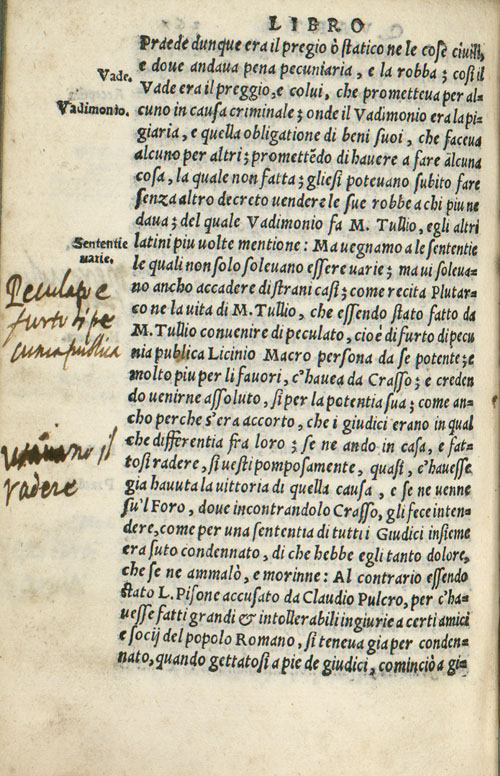 LIBRO
Praede dunque era il pregio ò statico ne le cose ciuili,
e doue andaua pena pecuniaria, e la robba; cosi il
Vade.
Vade era il preggio, e colui, che prometteua per al-
Vadimonio.
cuno in causa criminale; onde il Vadimonio era la pi-
giaria, e quella obligatione di beni suoi, che faceua
alcuno per altri; promettẽdo di hauere a fare alcuna
cosa, la quale non fatta; gliesi poteuano subito fare
senza altro decreto uendere le sue robbe a chi piu ne
daua; del quale Vadimonio fa M. Tullio, e gli altri
Sententie
uarie.
latini piu uolte mentione: Ma uegnamo a le sententie
le quali non solo soleuano essere uarie; ma ui soleua-
no ancho accadere di strani casi; come recita Plutar-
co ne la uita di M. Tullio, che essendo stato fatto da
Peculato e
furto di pe
cunia publica
M. Tullio conuenire di peculato, cioè di furto di pecu
nia publica Licinio Macro persona da se potente; e
molto piu per li fauori, c'hauea da Crasso; e creden
do uenirne assoluto, si per la potentia sua; come an-
cho perche s'era accorto, che i giudici erano in qual
che differentia fra loro; se ne ando in casa, e fat-
il
Vadere
tosi radere, si uesti pomposamente, quasi, c'hauesse
gia hauuta la uittoria di quella causa, e se ne uenne
su'l Foro, doue incontrandolo Crasso, gli fece inten-
dere, come per una sententia di tutti i Giudici insieme
era suto condennato, di che hebbe egli tanto dolore,
che se ne ammalò, e morinne: Al contrario essendo
stato L. Pisone accusato da Claudio Pulcro, per c'ha-
uesse fatti grandi & intollerabili ingiurie a certi amici
e socij del popolo Romano, si teneua gia per conden-
nato, quando gettatosi a pie de giudici, cominciò a gi-